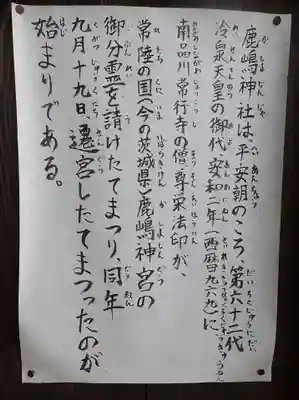 鹿嶋神社は、平安朝のころ、第六十二代
冷泉天皇の御代、安和二年(西暦九六九)に、
南品川常行寺の僧尊栄法印が、
常陸の国(今の茨城県)鹿嶋神宮の
御分霊を請けたてまつり、同年
九月十九日、遷宮したてまつったのが
始まりである。